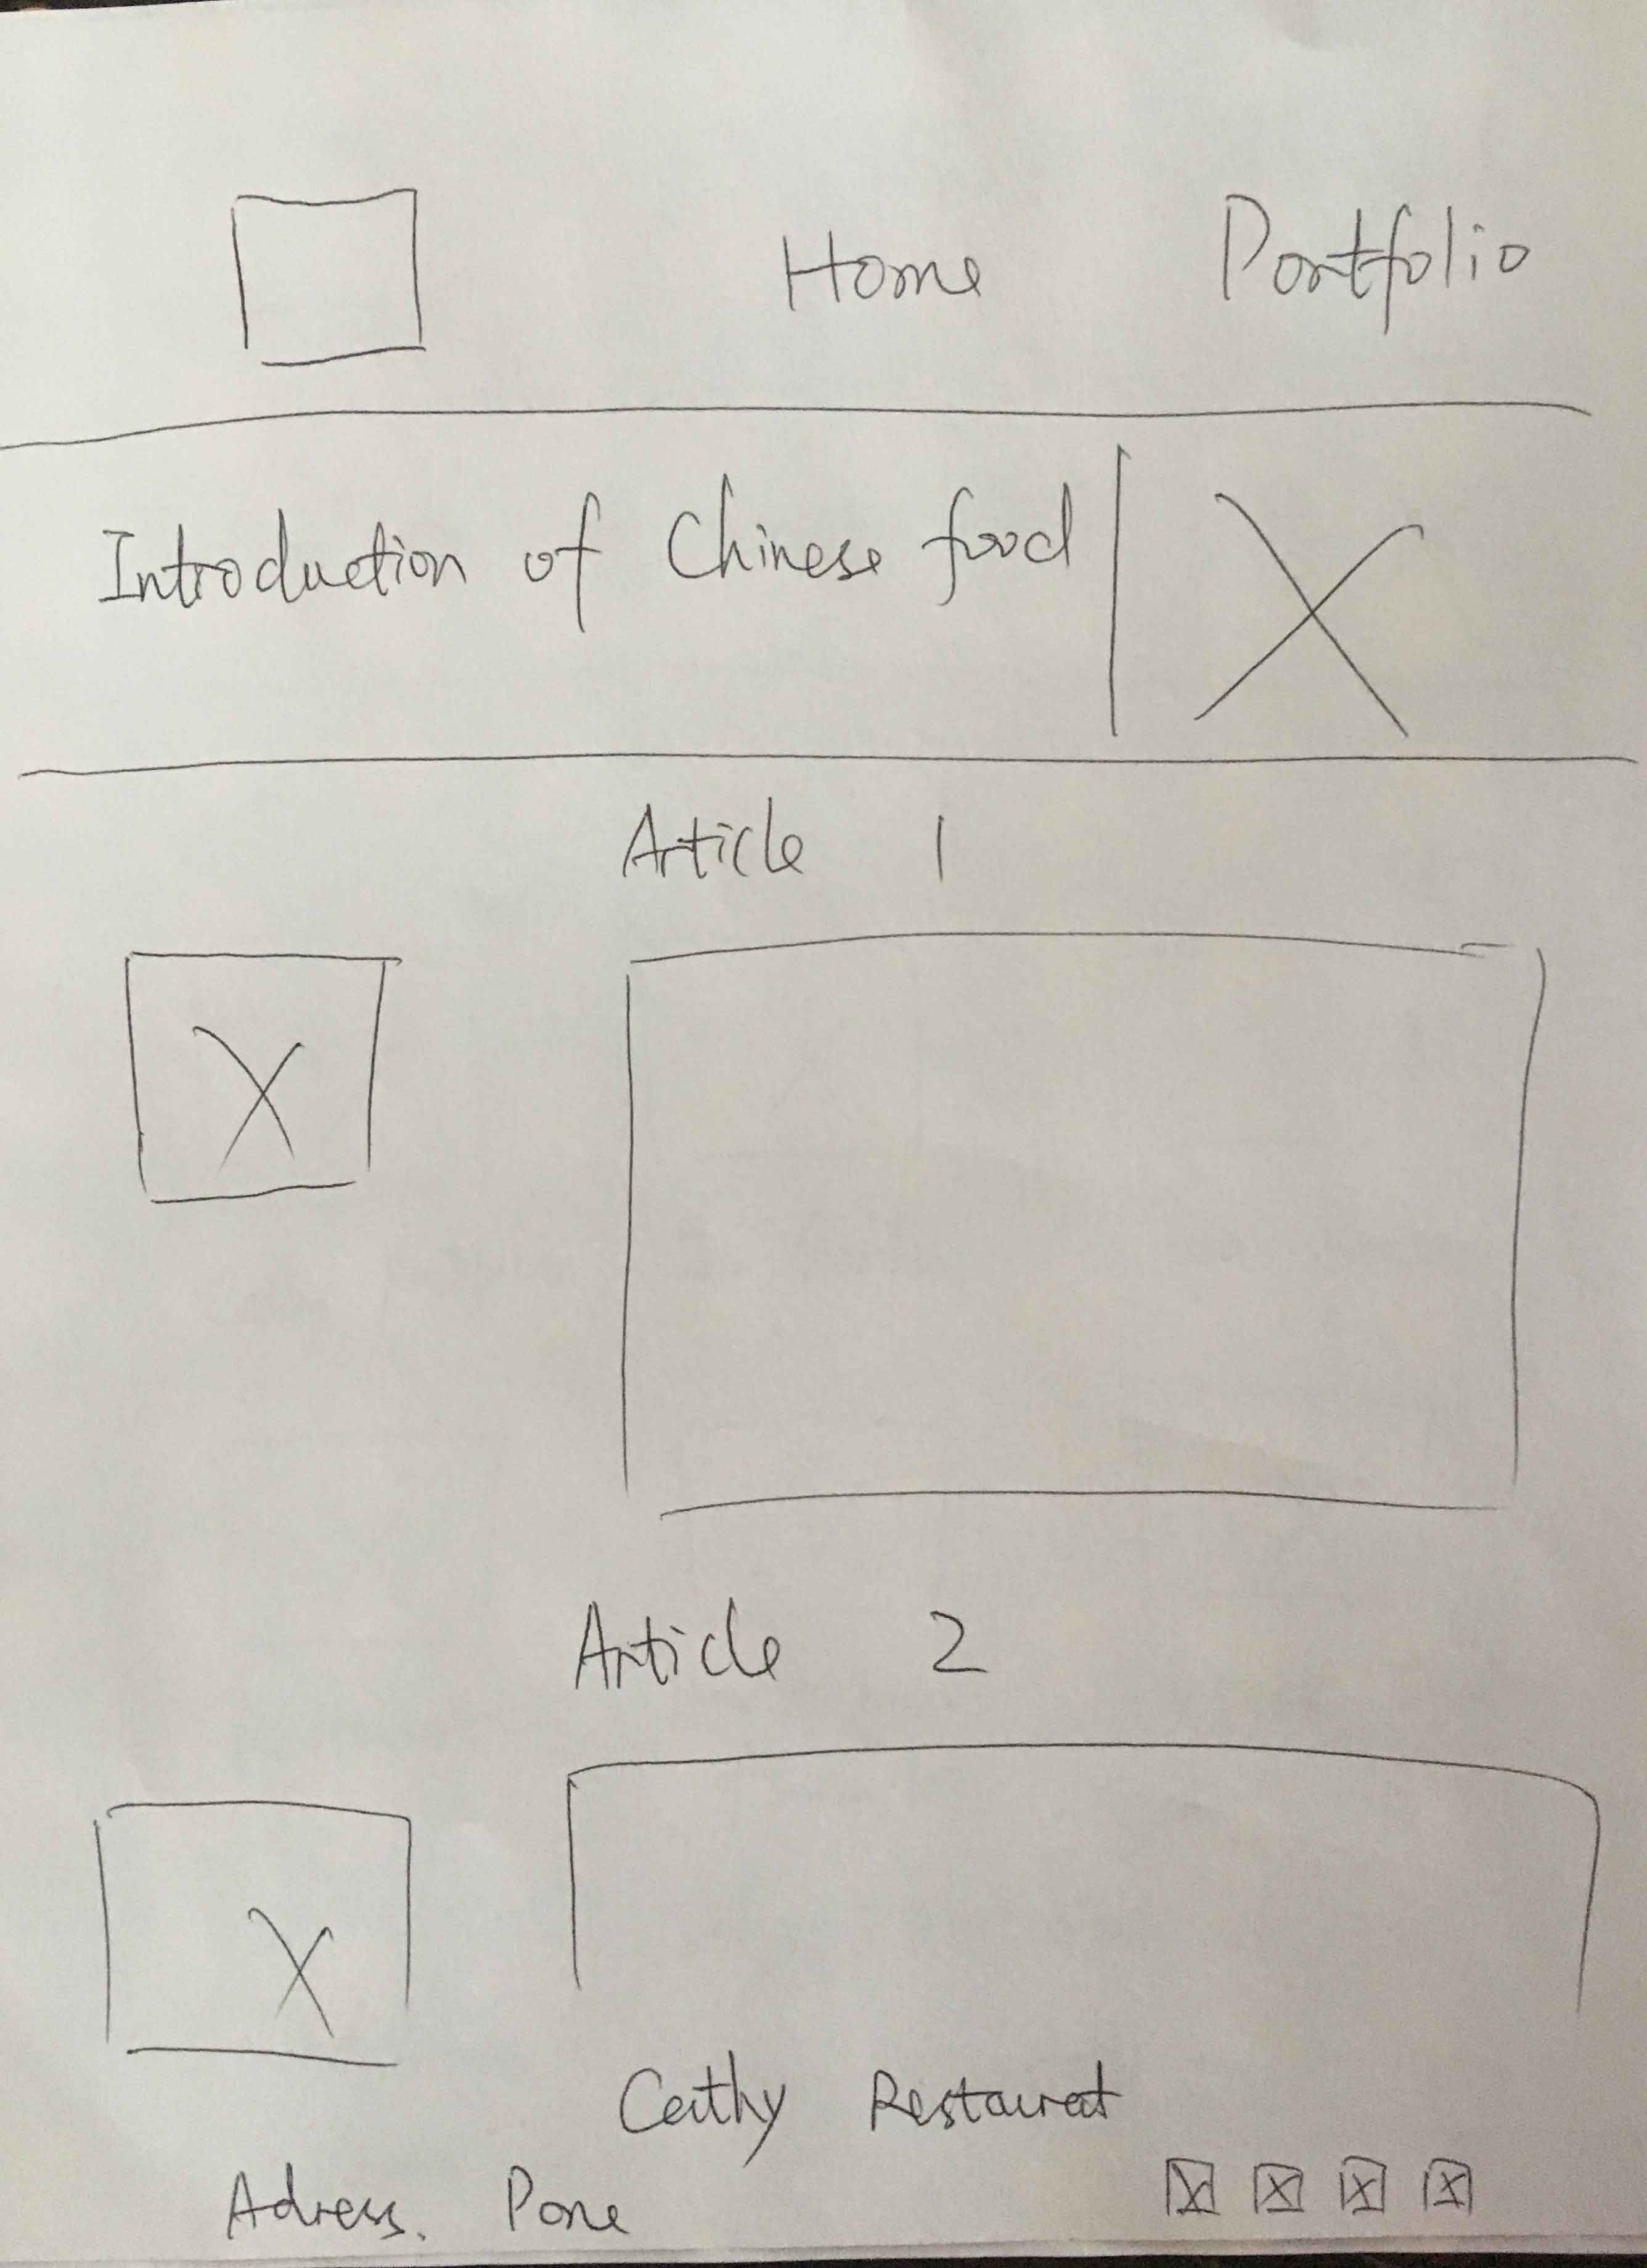 Home Portfolio
Introduction of Chinese food
Article 1
Article 2
Cathy Restaurat
Adress. Pone